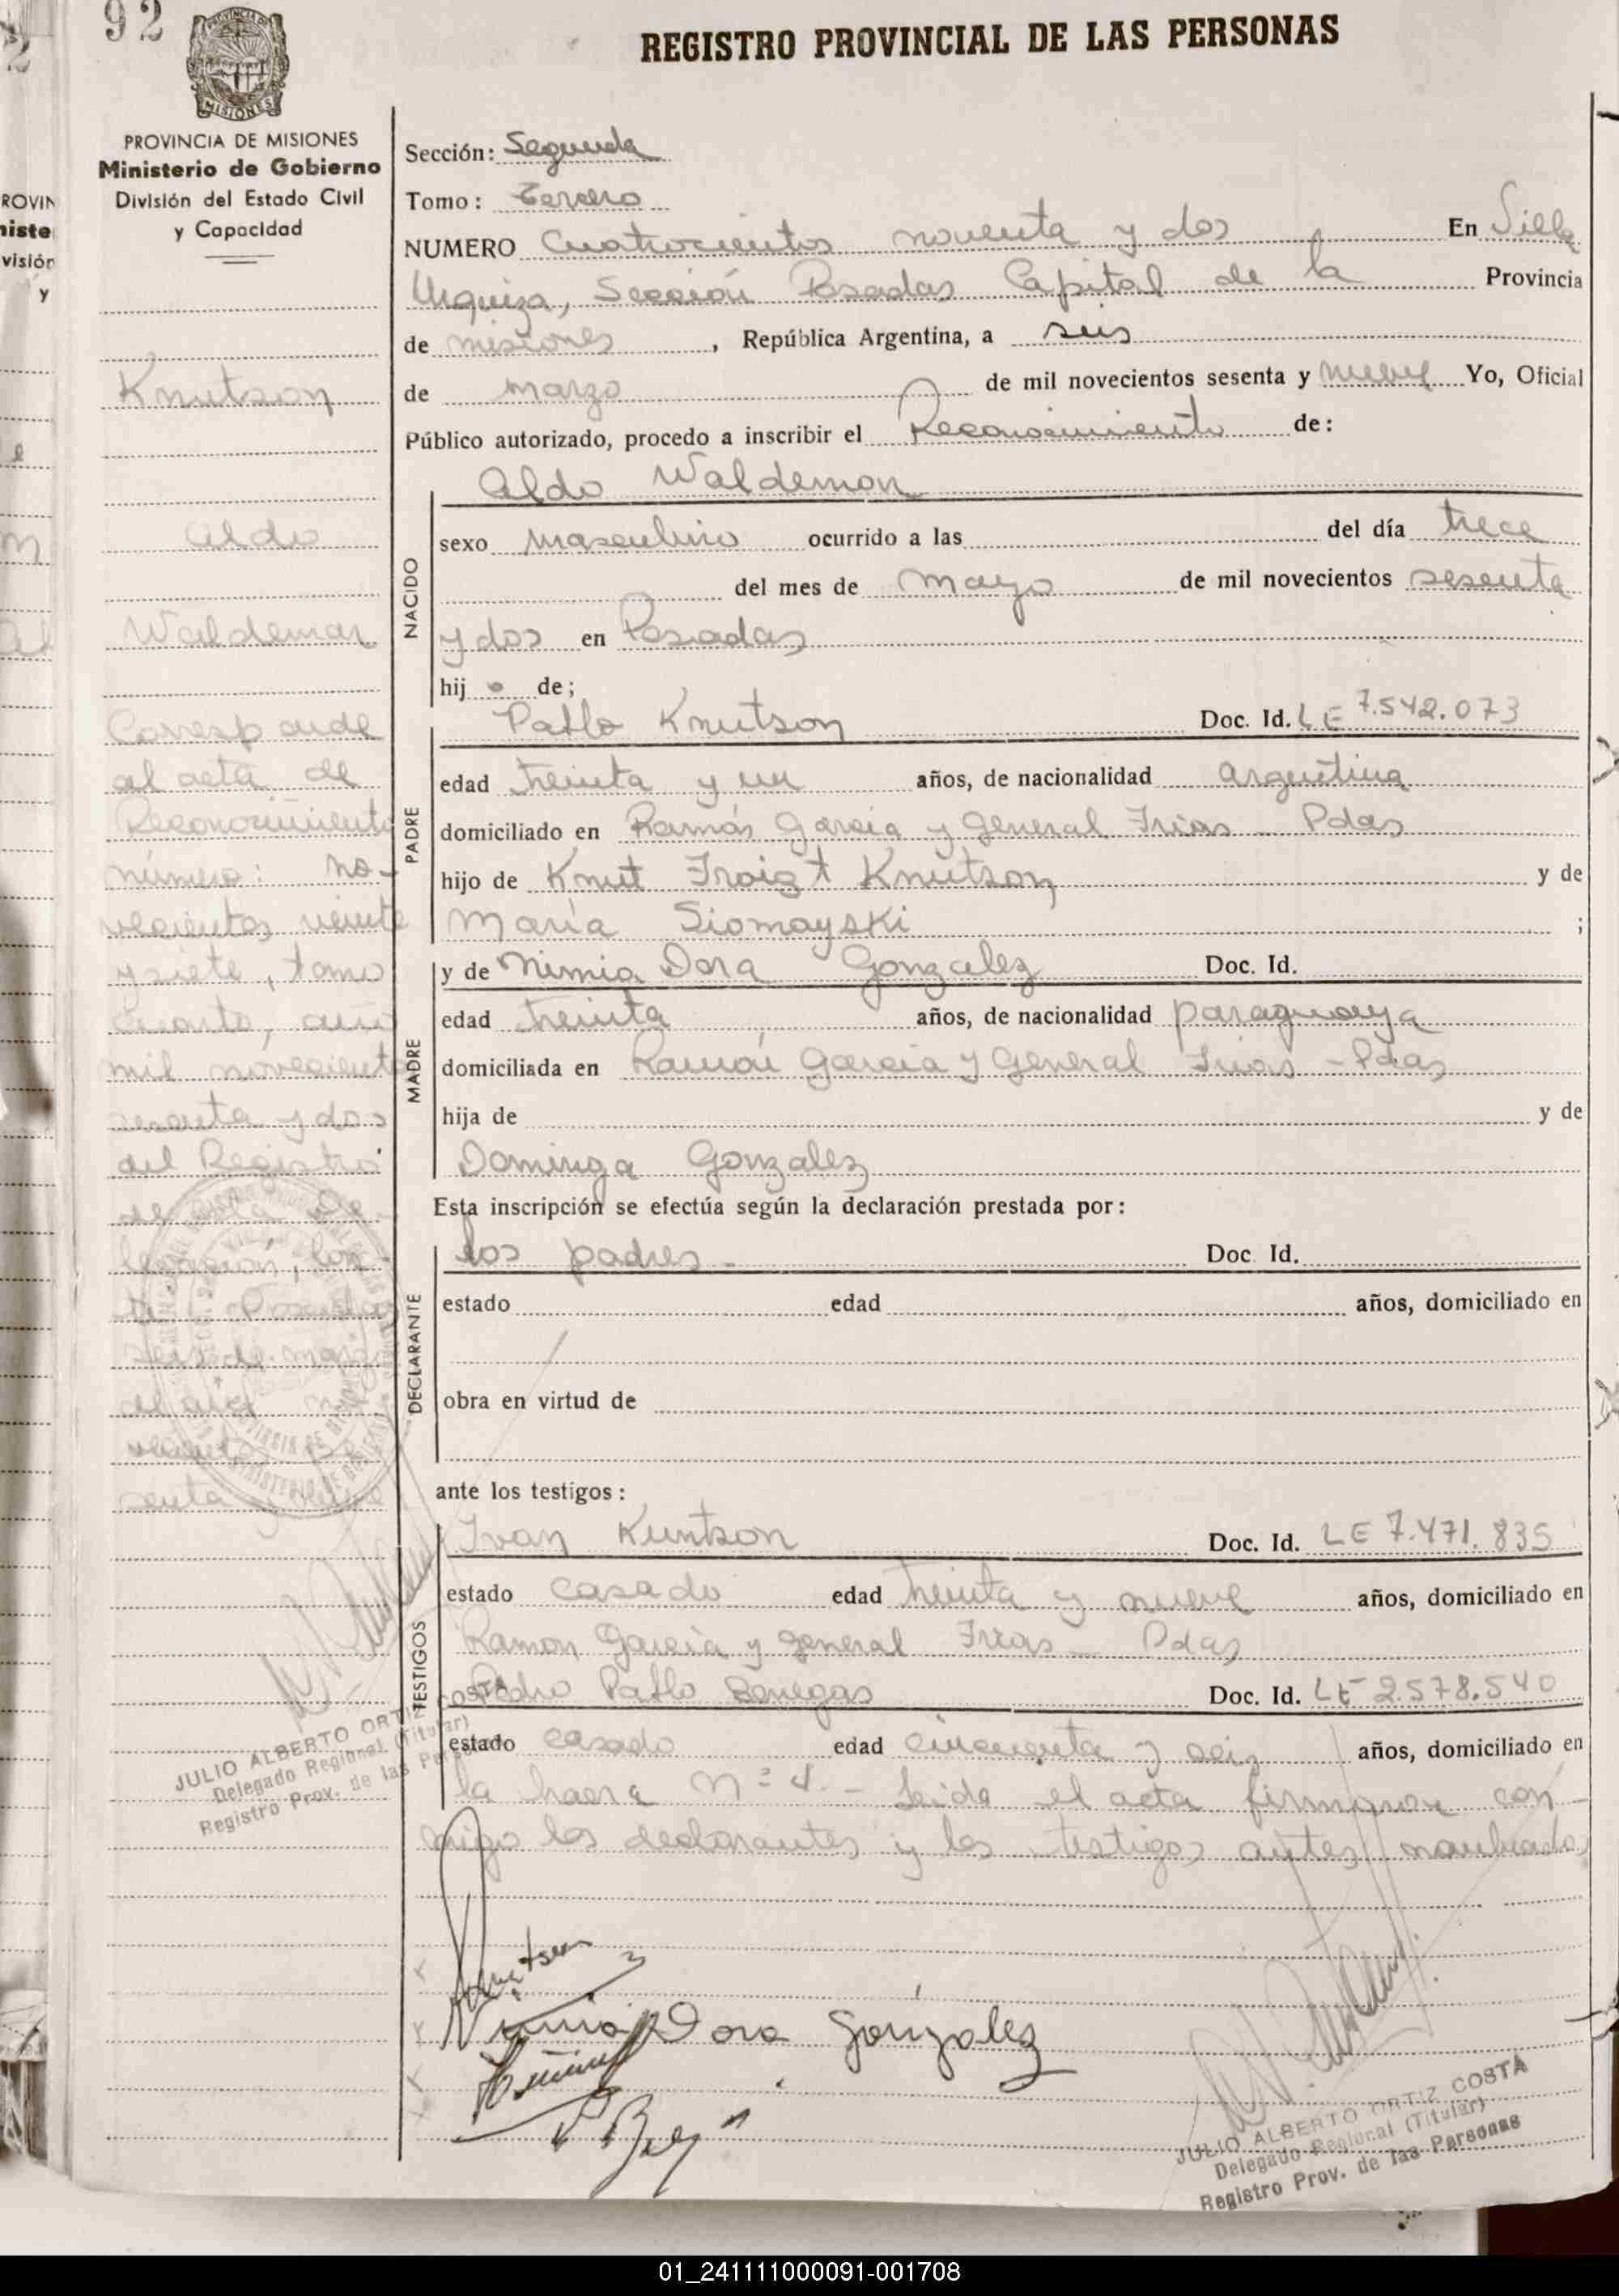 92
REGISTRO PROVINCIAL DE LAS PERSONAS
PROVINCIA DE MISIONES
Ministerio de Gobierno
División del Estado Civil
y Capacidad
Knutson
Aldo
Waldemar
Corresponde
al acta de
Reconocimiento
número: no-
vecientos veinte
y siete, tomo
cuarto, año
mil novecientos
sesenta y dos
del Registro
de esta De-
legación,
Posadas
seis de marzo
del año mil
novecientos se-
senta y nueve
JULIO ALBERTO ORTIZ COSTA
Delegado Regional (Titular)
Registro Prov. de las Personas
Sección: Segunda
Tomo: Tercero
NUMERO Cuatrocientos noventa y dos En Villa
Urquiza, Sección Posadas Capital de la Provincia
de misiones, República Argentina, a seis
de marzo de mil novecientos sesenta y nueve Yo, Oficial
Público autorizado, procedo a inscribir el Reconocimiento de:
Aldo Waldemar
NACIDO
sexo masculino ocurrido a las del día trece
del mes de mayo de mil novecientos sesenta
y dos en Posadas
hijo de;
Pablo Knutson Doc. Id. LE 7.542.073
PADRE
edad treinta y un años, de nacionalidad argentina
domiciliado en Ramón García y General Frias - Pdas
hijo de Knut Froigt Knutson y de
María Siomayski ;
y de Nimia Dora Gonzalez Doc. Id.
MADRE
edad treinta años, de nacionalidad paraguaya
domiciliada en Ramón García y General Frias - Pdas
hija de y de
Dominga Gonzalez
Esta inscripción se efectúa según la declaración prestada por:
los padres - Doc. Id.
DECLARANTE
estado edad años, domiciliado en
obra en virtud de
ante los testigos:
Ivan Kuntson Doc. Id. LE 7.471.835
TESTIGOS
estado casado edad treinta y nueve años, domiciliado en
Ramon García y general Frias - Pdas
Pedro Pablo Benegas Doc. Id. LE 2.578.540
estado casado edad cincuenta y seis años, domiciliado en
la haera Nº 4. - Leída el acta firmaron con-
migo los declarantes y los testigos antes nombrados
Knutson
Nimia Dora González
JULIO ALBERTO ORTIZ COSTA
Delegado Regional (Titular)
Registro Prov. de las Personas
01_241111000091-001708